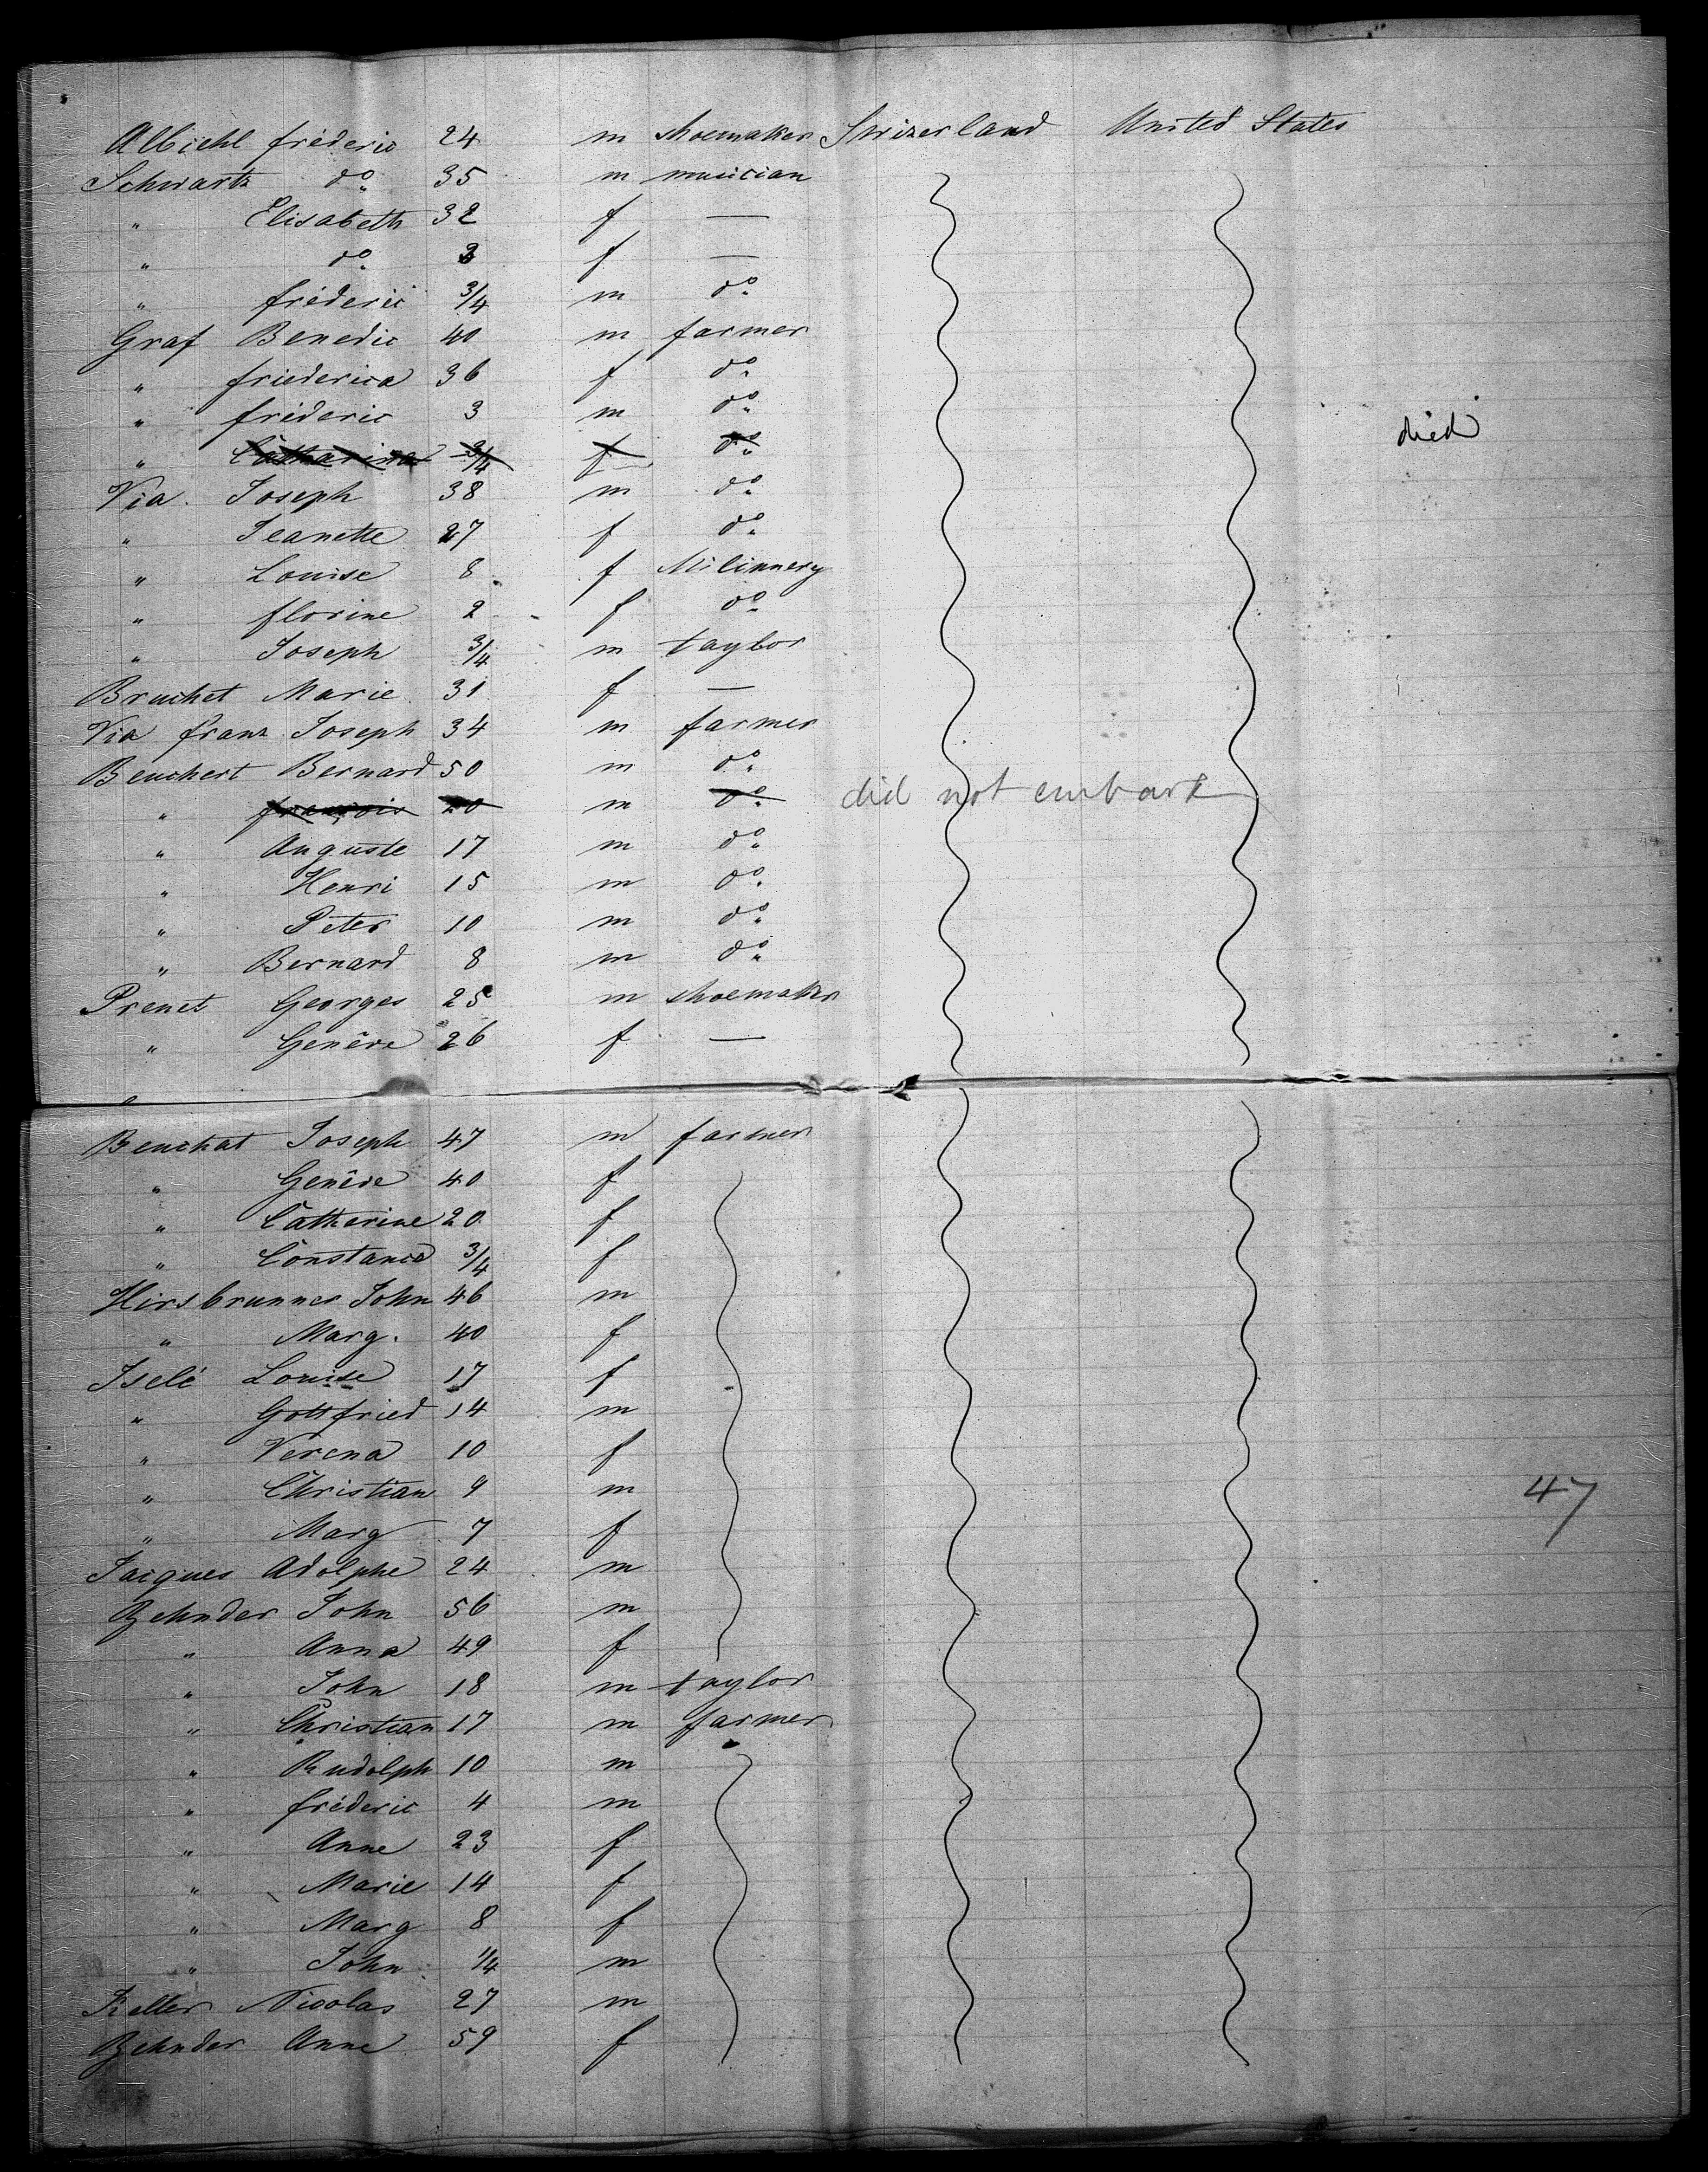 Albiehl fréderic 24 m shoemaker Swizerland United States
Schwartz do 35 m musician
" Elisabeth 32 f —
" do 3 f —
" fréderic 3/4 m do
Graf Benedic 40 m farmer
" friederica 36 f do
" fréderic 3 m do
" Catharina 3/4 f do died
Via Joseph 38 m do
" Jeanette 27 f do
" Louise 8 f Milinnery
" florine 2 f do
" Joseph 3/4 m taylor
Bruchet Marie 31 f —
Via franz Joseph 34 m farmer
Beuchert Bernard 50 m do
" françois 20 m do did not embark
" Auguste 17 m do
" Henri 15 m do
" Peter 10 m do
" Bernard 8 m do
Prenet Georges 25 m shoemaker
" Genêve 26 f —
Beuchat Joseph 47 m farmer
" Genêve 40 f
" Catherine 20 f
" Constance 3/4 f
Hirsbrunner John 46 m
" Marg. 40 f
Iselé Louise 17 f
" Gottfried 14 m
" Verena 10 f
" Christian 9 m 47
" Marg 7 f
Jacques Adolphe 24 m
Zehnder John 56 m
" Anna 49 f
" John 18 m taylor
" Christian 17 m farmer
" Rudolph 10 m
" fréderic 4 m
" Anne 23 f
" Marie 14 f
" Marg 8 f
" John 1/4 m
Keller Nicolas 27 m
Zehnder Anne 59 f